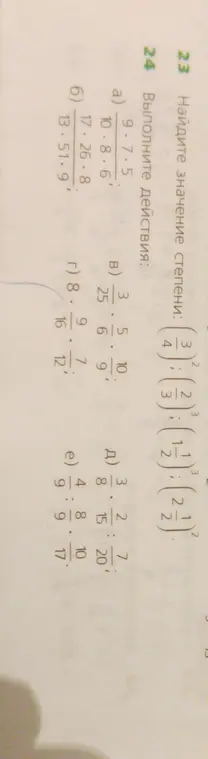 23 Найдите значение степени: (3/4)²; (2/3)³; (1 1/2)³; (2 1/2)².
24 Выполните действия:
а) (9 · 7 · 5)/(10 · 8 · 6); в) 3/25 · 5/6 · 10/9; д) 3/8 · 2/15 : 7/20;
б) (17 · 26 · 8)/(13 · 51 · 9); г) 8 · 9/16 · 7/12; е) 4/9 : 8/9 · 10/17.